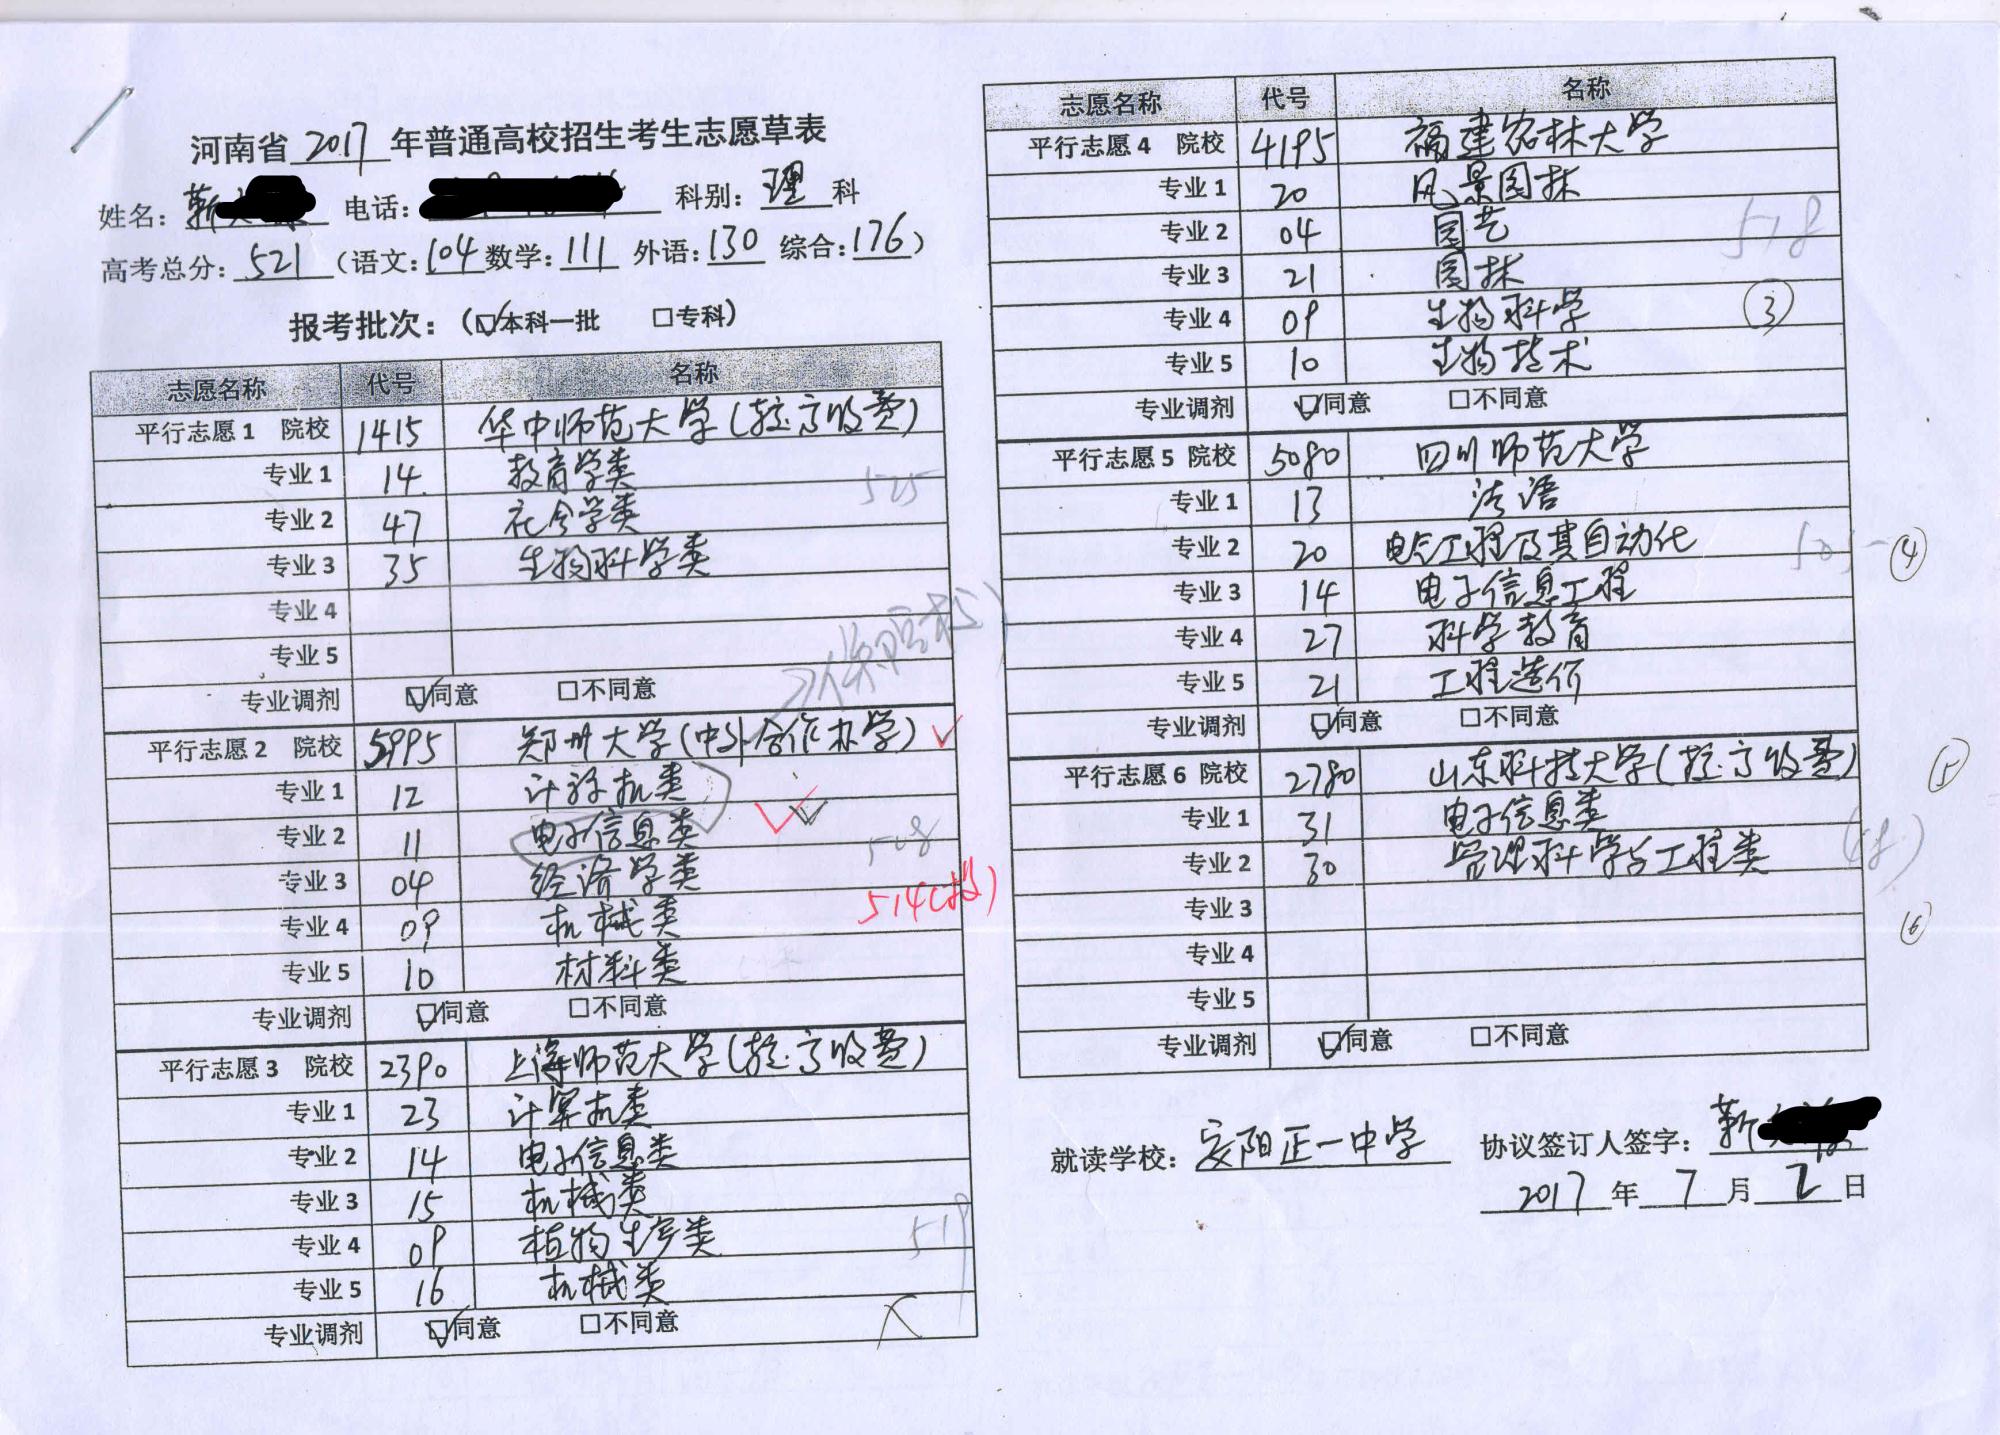 河南省 2017 年普通高校招生考生志愿草表
姓名: 靳 电话: 科别: 理 科
高考总分: 521 (语文: 104 数学: 111 外语: 130 综合: 176)
报考批次: (☑本科一批 □专科)
志愿名称 代号 名称
平行志愿1 院校 1415 华中师范大学(较高收费)
专业1 14. 教育学类 525
专业2 47 社会学类
专业3 35 生物科学类
专业4
专业5
专业调剂 ☑同意 □不同意
平行志愿2 院校 5995 郑州大学(中外合作办学)
专业1 12 计算机类
专业2 11 电子信息类 508
专业3 04 经济学类
514(投)
专业4 09 机械类
专业5 10 材料类
专业调剂 ☑同意 □不同意
平行志愿3 院校 2390 上海师范大学(较高收费)
专业1 23 计算机类
专业2 14 电子信息类
专业3 15 机械类
专业4 09 植物生产类 519
专业5 16 机械类
专业调剂 ☑同意 □不同意
志愿名称 代号 名称
平行志愿4 院校 4195 福建农林大学
专业1 20 风景园林
专业2 04 园艺 518
专业3 21 园林
专业4 09 生物科学 ③
专业5 10 生物技术
专业调剂 ☑同意 □不同意
平行志愿5 院校 5080 四川师范大学
专业1 13 法语
专业2 20 电气工程及其自动化 505 ④
专业3 14 电子信息工程
专业4 27 科学教育
专业5 21 工程造价
专业调剂 ☑同意 □不同意
平行志愿6 院校 2780 山东科技大学(较高收费) ⑤
专业1 31 电子信息类
专业2 30 管理科学与工程类
专业3
⑥
专业4
专业5
专业调剂 ☑同意 □不同意
就读学校: 安阳正一中学 协议签订人签字: 靳
2017 年 7 月 2 日